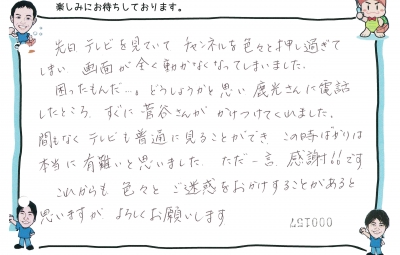 楽しみにお待ちしております。
先日テレビを見ていて チャンネルを色々と押し過ぎて
しまい 画面が全く動かなくなってしまいました。
困ったもんだ…。どうしようかと思い 鹿光さんに電話
したところ、すぐに菅谷さんが かけつけてくれました。
間もなく テレビも普通に見ることができ、この時ばかりは
本当に有難いと思いました。ただ一言、感謝!!です
これからも 色々と ご迷惑をおかけすることがあると
思いますが よろしくお願いします
000157